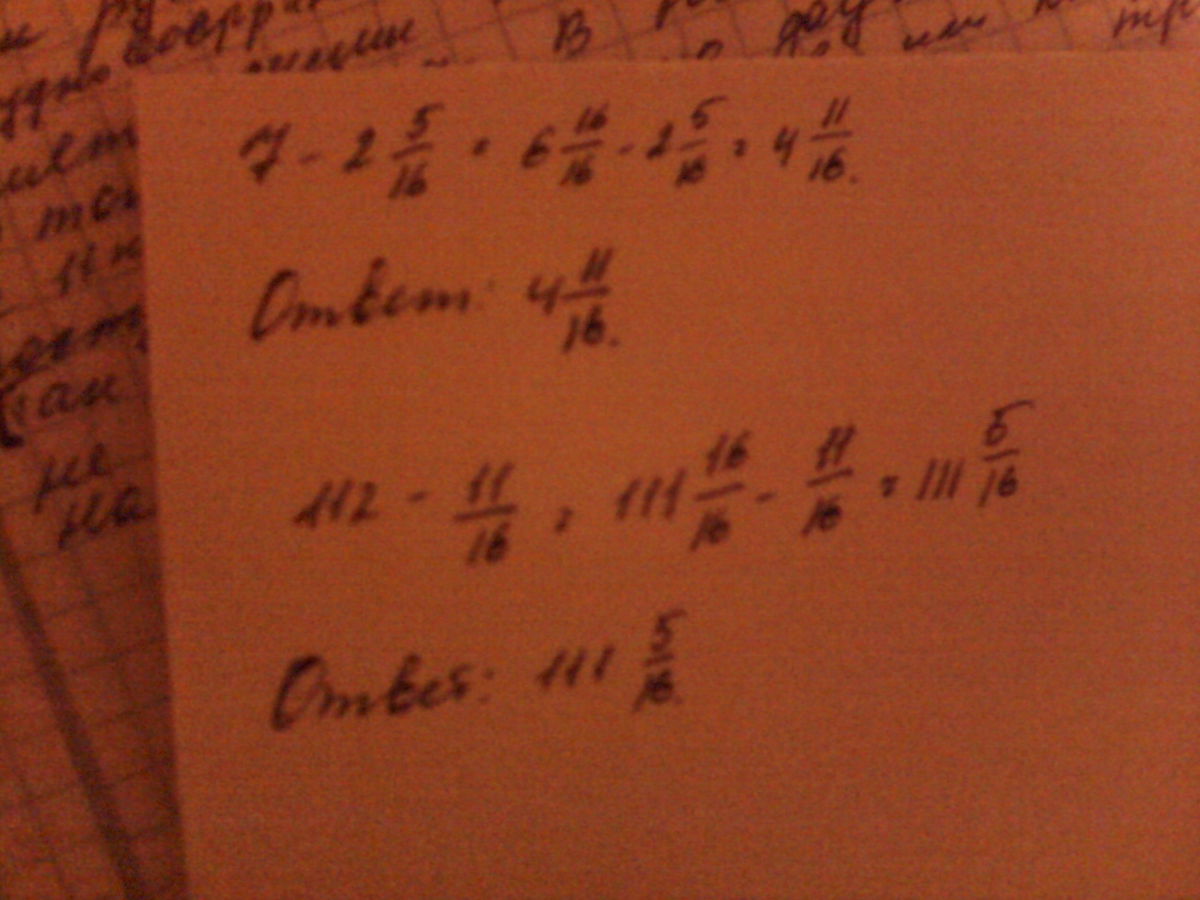 В
7 - 2 5/16 = 6 16/16 - 2 5/16 = 4 11/16.
Ответ: 4 11/16.
112 - 11/16 = 111 16/16 - 11/16 = 111 5/16
Ответ: 111 5/16.
не
на